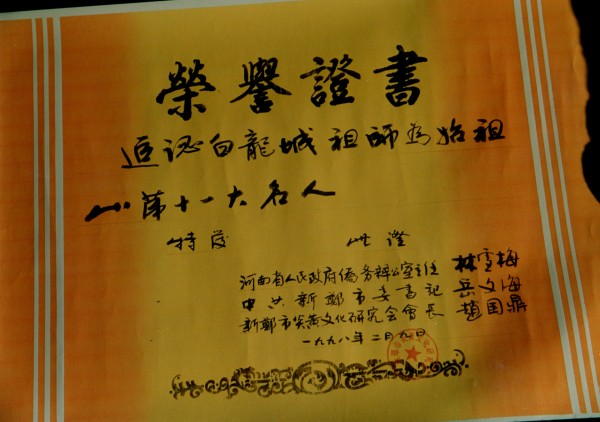 榮譽證書
追認白龍城祖師為始祖
山第十一大名人
特發 此證
河南省人民政府僑务辦公室主任 林雪梅
中共新鄭市委書記 岳文海
新鄭市炎黃文化研究会會長 趙国鼎
一九九八年二月九日